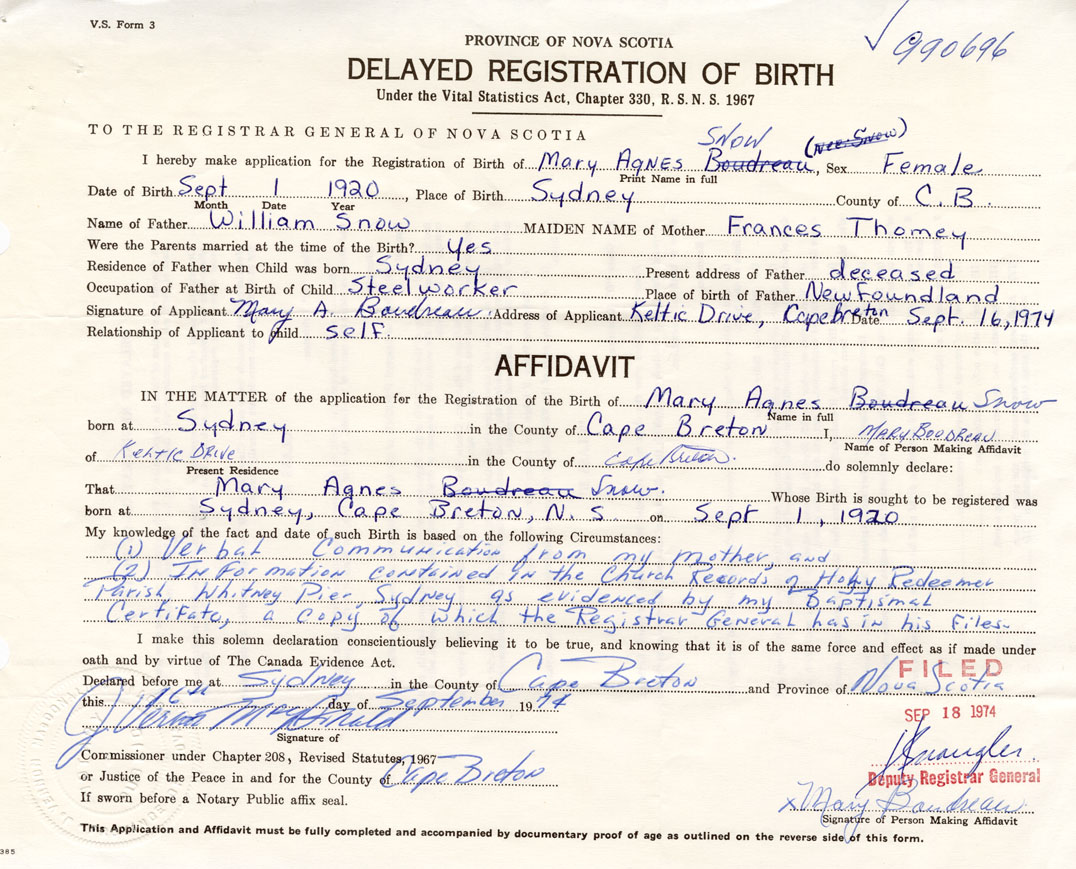 V.S. Form 3
✓ 990696
PROVINCE OF NOVA SCOTIA
DELAYED REGISTRATION OF BIRTH
Under the Vital Statistics Act, Chapter 330, R.S.N.S. 1967
TO THE REGISTRAR GENERAL OF NOVA SCOTIA
SNOW (nee Snow)
I hereby make application for the Registration of Birth of Mary Agnes Boudreau, Sex Female
Print Name in full
Date of Birth Sept 1 1920, Place of Birth Sydney County of C.B.
Month Date Year
Name of Father William Snow MAIDEN NAME of Mother Frances Thomey
Were the Parents married at the time of the Birth? Yes
Residence of Father when Child was born Sydney Present address of Father deceased
Occupation of Father at Birth of Child Steelworker Place of birth of Father Newfoundland
Signature of Applicant Mary A. Boudreau Address of Applicant Keltic Drive, Capebreton Date Sept. 16, 1974
Relationship of Applicant to child self
AFFIDAVIT
IN THE MATTER of the application for the Registration of the Birth of Mary Agnes Boudreau Snow
Name in full
born at Sydney in the County of Cape Breton I, MARY BOUDREAU
Name of Person Making Affidavit
of Keltic Drive in the County of Cape Breton do solemnly declare:
Present Residence
That Mary Agnes Boudreau Snow. Whose Birth is sought to be registered was
born at Sydney, Cape Breton, N.S on Sept 1, 1920
My knowledge of the fact and date of such Birth is based on the following Circumstances:
(1) Verbal Communication from my mother, and
(2) Information contained in the Church Records of Holy Redeemer
Parish, Whitney Pier, Sydney as evidenced by my Baptismal
Certifate, a copy of which the Registrar General has in his files.
I make this solemn declaration conscientiously believing it to be true, and knowing that it is of the same force and effect as if made under
oath and by virtue of The Canada Evidence Act.
FILED
Declared before me at Sydney in the County of Cape Breton and Province of Nova Scotia
this 16th day of September 1974
SEP 18 1974
Signature of
Commissioner under Chapter 208, Revised Statutes, 1967
or Justice of the Peace in and for the County of Cape Breton
Deputy Registrar General
If sworn before a Notary Public affix seal.
x Mary Boudreau
Signature of Person Making Affidavit
This Application and Affidavit must be fully completed and accompanied by documentary proof of age as outlined on the reverse side of this form.
385